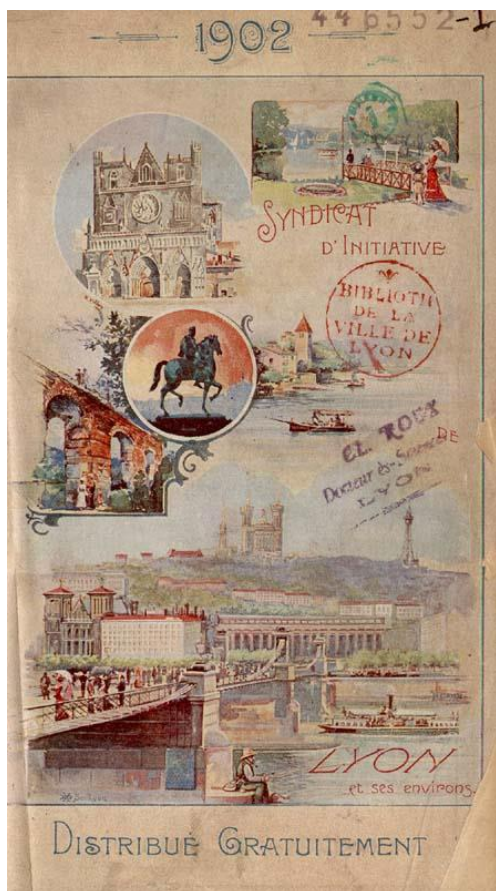 446552-1
1902
SYNDICAT
D'INITIATIVE
BIBLIOTH
DE LA
VILLE DE
LYON
CL. ROUX
Docteur ès-Sciences
LYON
DE
LYON
et ses environs
DISTRIBUÉ GRATUITEMENT